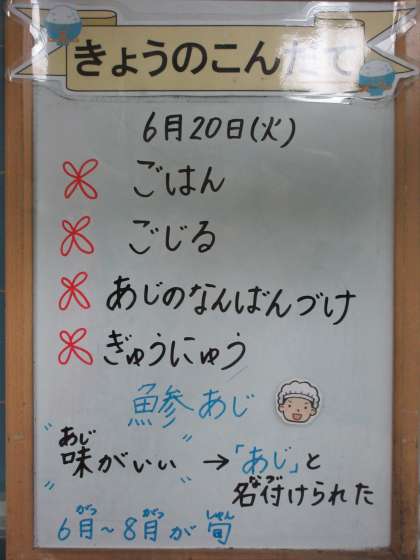 きょうのこんだて
6月20日(火)
ごはん
ごじる
あじのなんばんづけ
ぎゅうにゅう
鯵あじ
"味があじいい" →「あじ」と
名付けられた
6月~8月が旬